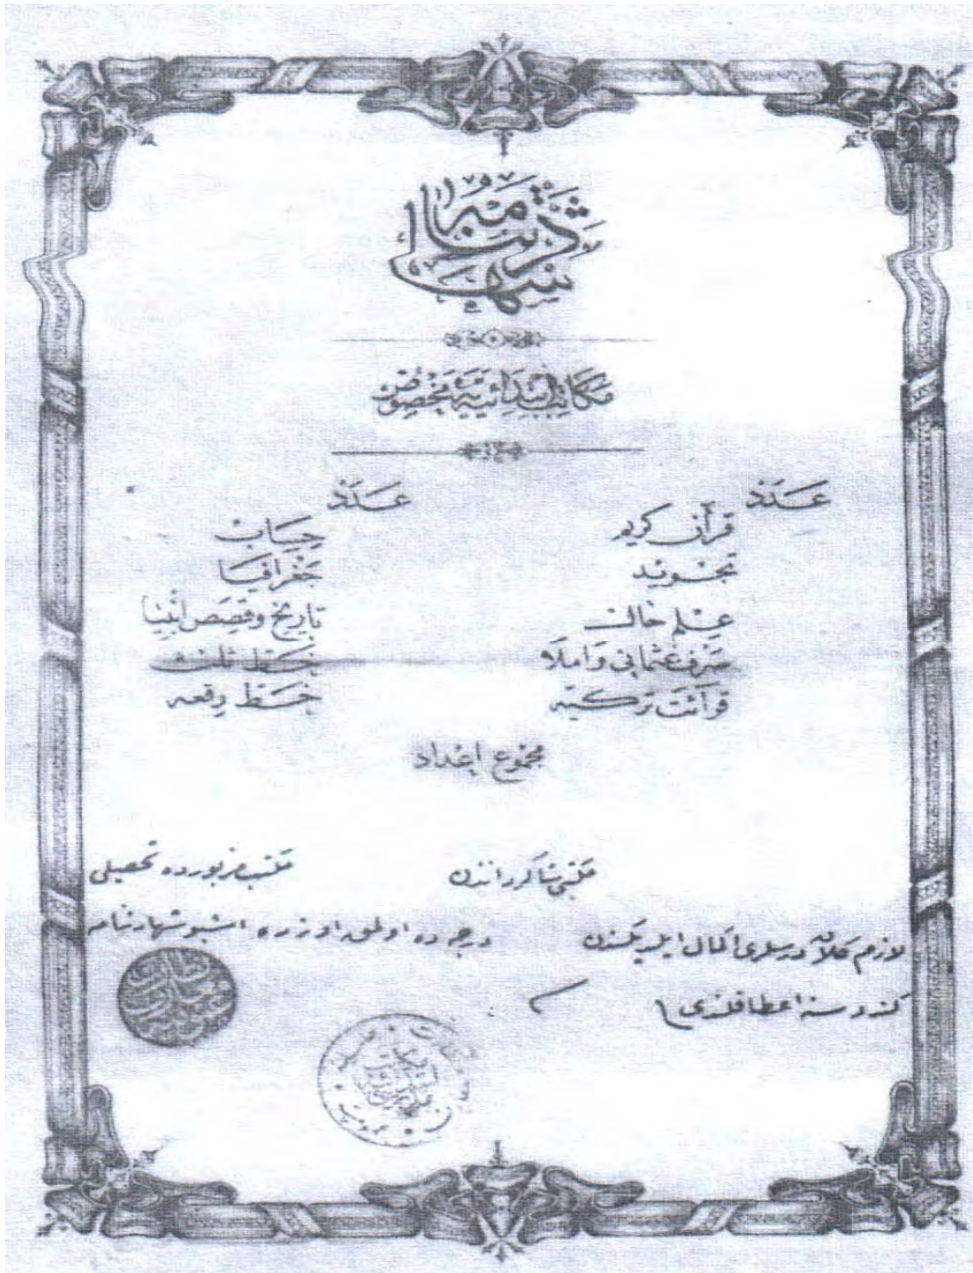 شهادتنامه
مكاتب ابتدائيه يه مخصوص
عدد
قرآن كريم
تجويد
علم حال
صرف عثمانى و املا
قرائت تركيه
عدد
حساب
جغرافيا
تاريخ و قصص انبيا
خط ثلث
خط رقعه
مجموع اعداد
مكتبى شاكرداندن مكتب مزبورده تحصيلى
لازم كلان درسلرى اكمال ايلديكندن درجه ده اولمق اوزره اشبو شهادتنامه
كندوسنه اعطا قلندى